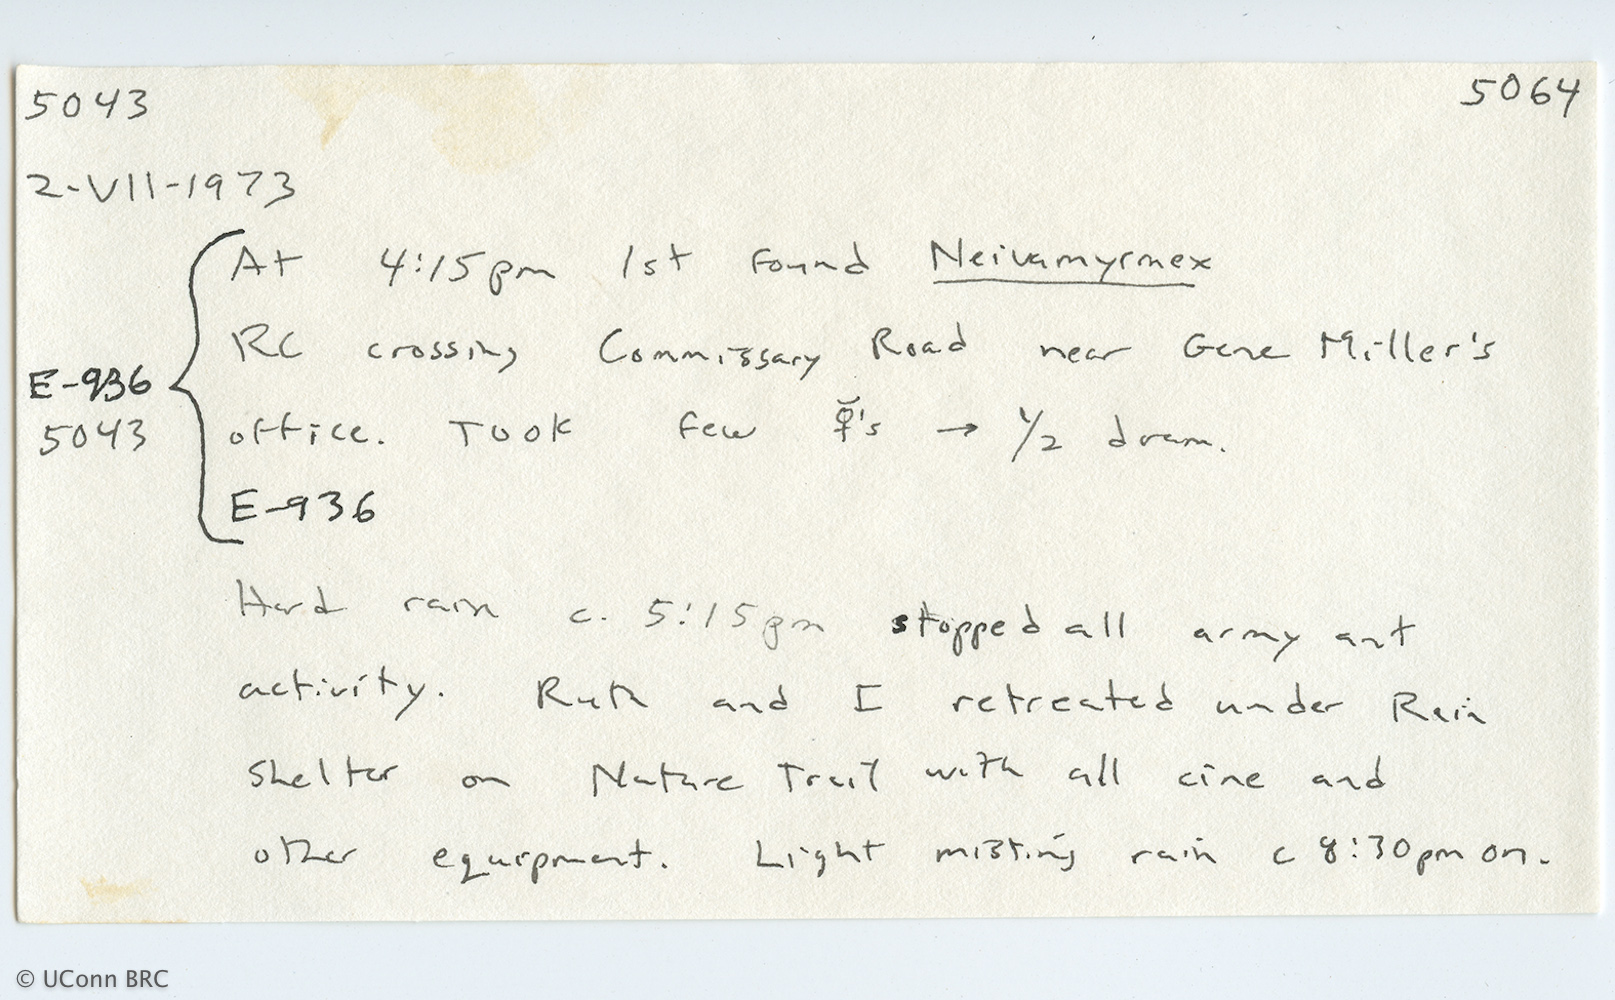 5043 5064
2-VII-1973
At 4:15pm 1st found Neivamyrmex
RC crossing Commissary Road near Gene Miller's
E-936
5043 office. Took few ☿̆'s → 1/2 dram.
E-936
Hard rain c. 5:15pm stopped all army ant
activity. Ruth and I retreated under Rain
shelter on Nature Trail with all cine and
other equipment. Light misting rain c 8:30pm on.
© UConn BRC